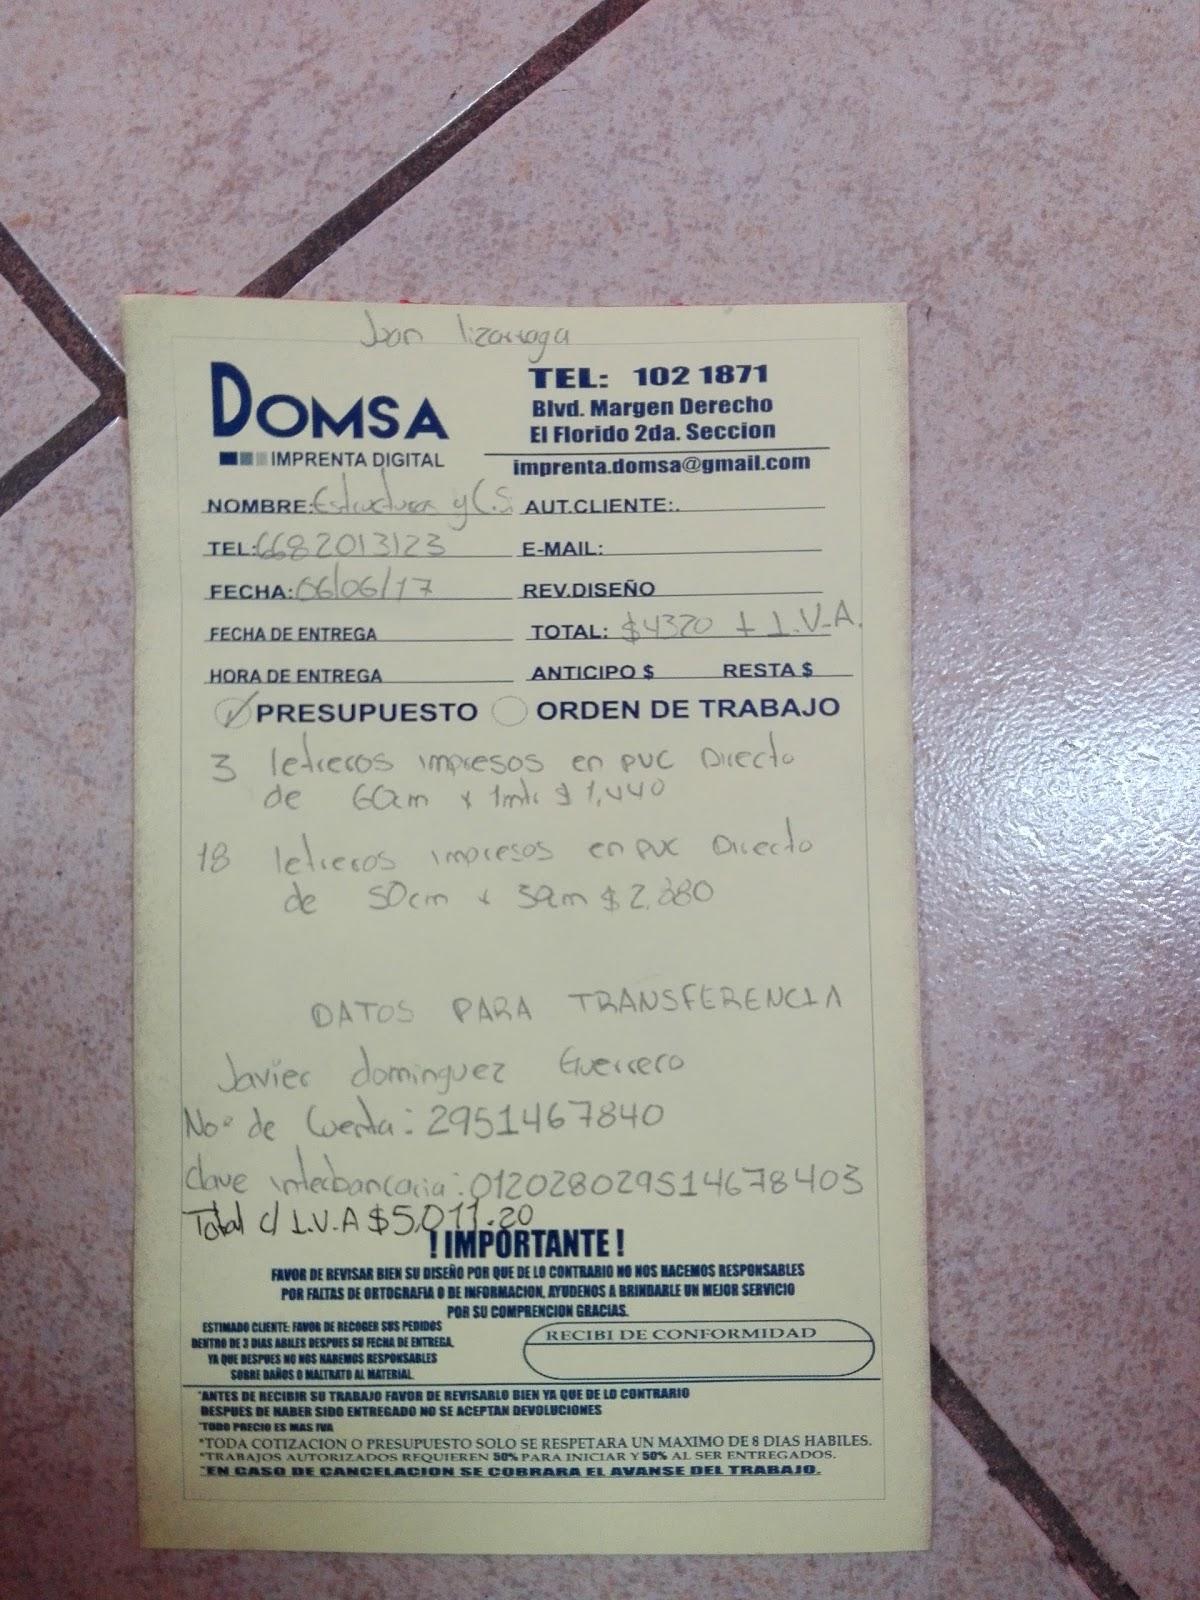 Juan lizarraga
DOMSA
IMPRENTA DIGITAL
TEL: 102 1871
Blvd. Margen Derecho
El Florido 2da. Seccion
imprenta.domsa@gmail.com
NOMBRE: Estructuras y C.S. AUT.CLIENTE:.
TEL: 6682013123 E-MAIL:
FECHA: 06/06/17 REV.DISEÑO
FECHA DE ENTREGA TOTAL: $4320 + I.V.A.
HORA DE ENTREGA ANTICIPO $ RESTA $
PRESUPUESTO ORDEN DE TRABAJO
3 letreros impresos en PVC Directo
de 60cm x 1mtr $1,440
18 letreros impresos en PVC Directo
de 50cm x 39cm $2,880
DATOS PARA TRANSFERENCIA
Javier dominguez Guerrero
No° de Cuenta: 2951467840
Clave interbancaria: 012028029514678403
Total c/ I.V.A $5,011.20
! IMPORTANTE !
FAVOR DE REVISAR BIEN SU DISEÑO POR QUE DE LO CONTRARIO NO NOS HACEMOS RESPONSABLES
POR FALTAS DE ORTOGRAFIA O DE INFORMACION, AYUDENOS A BRINDARLE UN MEJOR SERVICIO
POR SU COMPRENCION GRACIAS.
ESTIMADO CLIENTE: FAVOR DE RECOGER SUS PEDIDOS
DENTRO DE 3 DIAS ABILES DESPUES SU FECHA DE ENTREGA,
YA QUE DESPUES NO NOS HAREMOS RESPONSABLES
SOBRE DAÑOS O MALTRATO AL MATERIAL.
RECIBI DE CONFORMIDAD
*ANTES DE RECIBIR SU TRABAJO FAVOR DE REVISARLO BIEN YA QUE DE LO CONTRARIO
DESPUES DE HABER SIDO ENTREGADO NO SE ACEPTAN DEVOLUCIONES
*TODO PRECIO ES MAS IVA
*TODA COTIZACION O PRESUPUESTO SOLO SE RESPETARA UN MAXIMO DE 8 DIAS HABILES.
*TRABAJOS AUTORIZADOS REQUIEREN 50% PARA INICIAR Y 50% AL SER ENTREGADOS.
*EN CASO DE CANCELACION SE COBRARA EL AVANSE DEL TRABAJO.